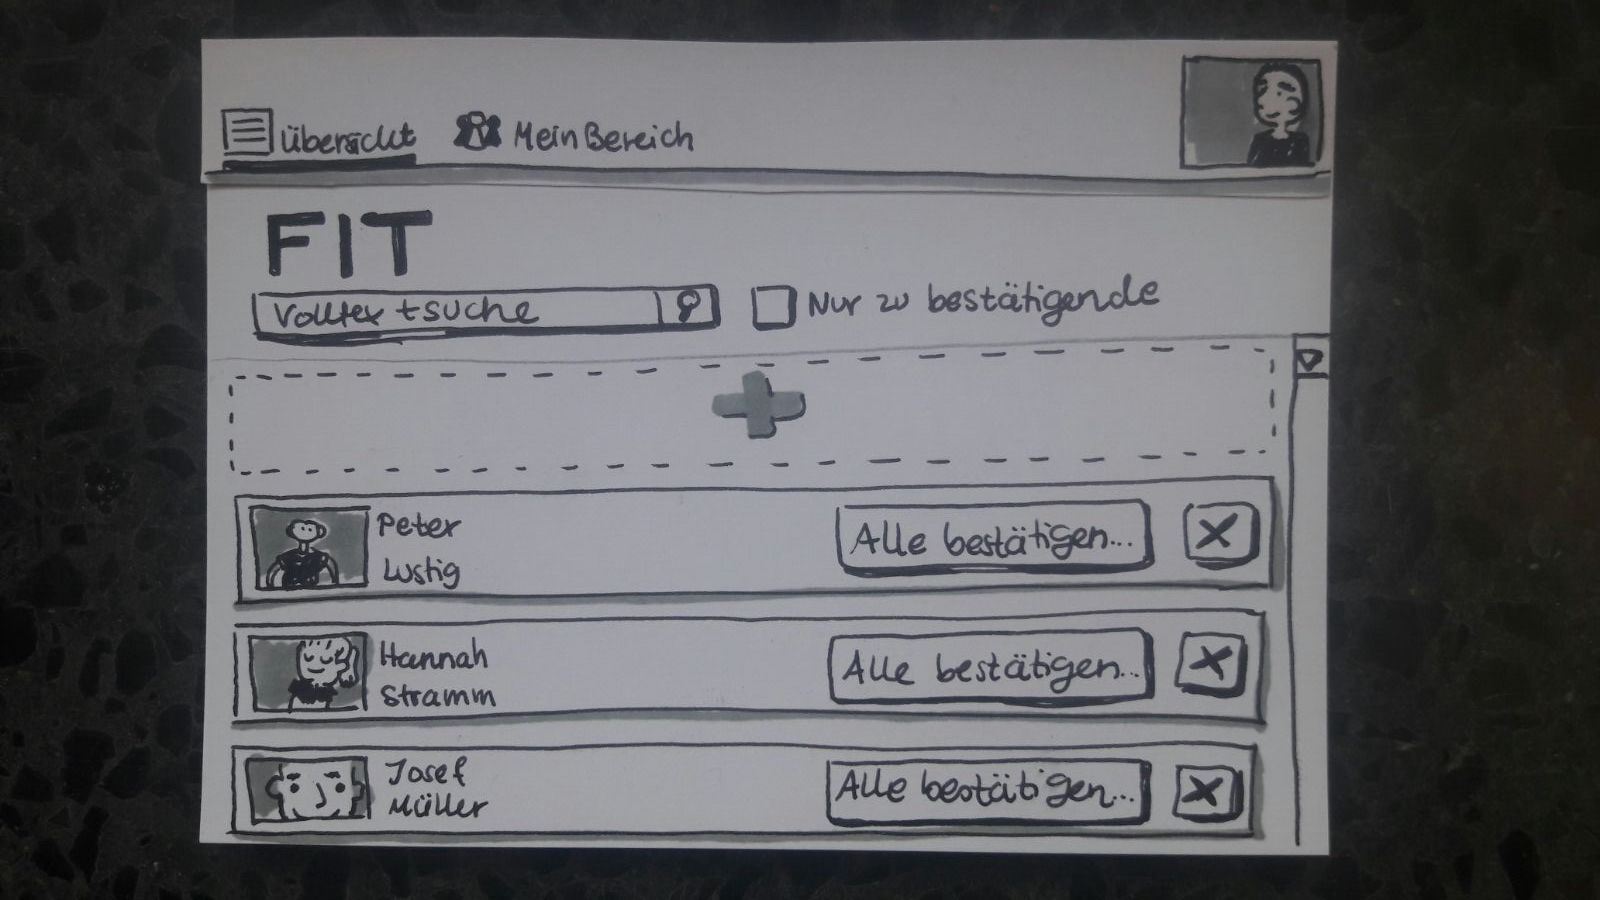 Übersicht
Mein Bereich
FIT
Volltextsuche
Nur zu bestätigende
Peter
Lustig
Alle bestätigen...
X
Hannah
Stramm
Alle bestätigen...
X
Josef
Müller
Alle bestätigen...
X